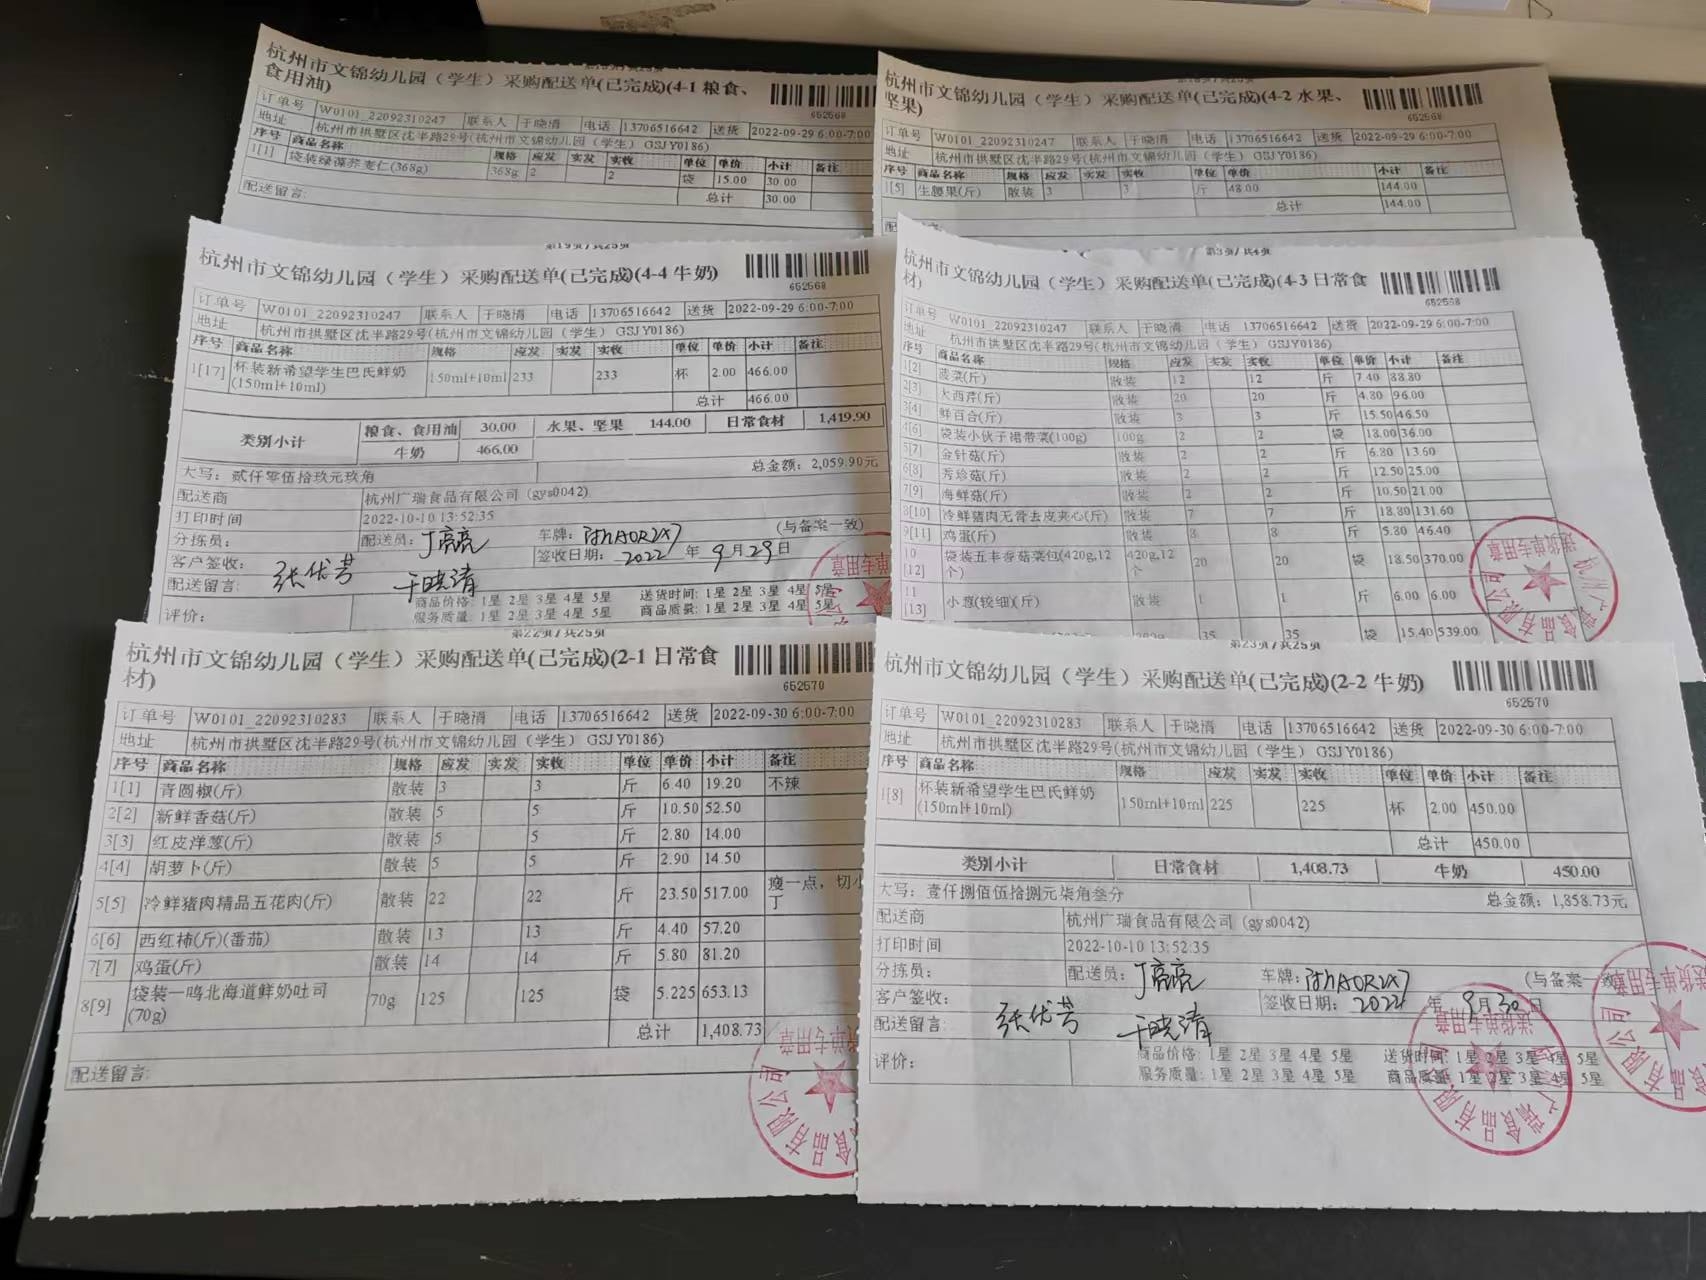 杭州市文锦幼儿园（学生）采购配送单(已完成)(4-1 粮食、
食用油)
652568
订单号 W0101_22092310247 联系人 于晓清 电话 13706516642 送货 2022-09-29 6:00-7:00
地址 杭州市拱墅区沈半路29号(杭州市文锦幼儿园（学生）GSJY0186)
序号 商品名称 规格 应发 实发 实收 单位 单价 小计 备注
1[1] 袋装绿源荞麦仁(368g) 368g 2 2 袋 15.00 30.00
总计 30.00
配送留言:
杭州市文锦幼儿园（学生）采购配送单(已完成)(4-2 水果、
坚果)
652568
订单号 W0101_22092310247 联系人 于晓清 电话 13706516642 送货 2022-09-29 6:00-7:00
地址 杭州市拱墅区沈半路29号(杭州市文锦幼儿园（学生）GSJY0186)
序号 商品名称 规格 应发 实发 实收 单位 单价 小计 备注
1[5] 生腰果(斤) 散装 3 3 斤 48.00 144.00
总计 144.00
第19页/共25页
杭州市文锦幼儿园（学生）采购配送单(已完成)(4-4 牛奶)
652568
订单号 W0101_22092310247 联系人 于晓清 电话 13706516642 送货 2022-09-29 6:00-7:00
地址 杭州市拱墅区沈半路29号(杭州市文锦幼儿园（学生）GSJY0186)
序号 商品名称 规格 应发 实发 实收 单位 单价 小计 备注
1[17] 杯装新希望学生巴氏鲜奶(150ml+10ml) 150ml+10ml 233 233 杯 2.00 466.00
总计 466.00
类别小计 粮食、食用油 30.00 水果、坚果 144.00 日常食材 1,419.90
牛奶 466.00
大写：贰仟零伍拾玖元玖角 总金额：2,059.90元
配送商 杭州广瑞食品有限公司（gys0042)
打印时间 2022-10-10 13:52:35
分拣员： 配送员：丁亮亮 车牌： (与备案一致)
客户签收： 张优芳 于晓清 签收日期：2022年9月29日
配送留言：
评价： 商品价格: 1星 2星 3星 4星 5星 送货时间: 1星 2星 3星 4星 5星
服务质量: 1星 2星 3星 4星 5星 商品质量: 1星 2星 3星 4星 5星
第3页/共4页
杭州市文锦幼儿园（学生）采购配送单(已完成)(4-3 日常食
材)
652568
订单号 W0101_22092310247 联系人 于晓清 电话 13706516642 送货 2022-09-29 6:00-7:00
地址 杭州市拱墅区沈半路29号(杭州市文锦幼儿园（学生）GSJY0186)
序号 商品名称 规格 应发 实发 实收 单位 单价 小计 备注
1[2] 菠菜(斤) 散装 12 12 斤 7.40 88.80
2[3] 大西芹(斤) 散装 20 20 斤 4.80 96.00
3[4] 鲜百合(斤) 散装 3 3 斤 15.50 46.50
4[6] 袋装小伙子裙带菜(100g) 100g 2 2 袋 18.00 36.00
5[7] 金针菇(斤) 散装 2 2 斤 6.80 13.60
6[8] 秀珍菇(斤) 散装 2 2 斤 12.50 25.00
7[9] 海鲜菇(斤) 散装 2 2 斤 10.50 21.00
8[10] 冷鲜猪肉无骨去皮夹心(斤) 散装 7 7 斤 18.80 131.60
9[11] 鸡蛋(斤) 散装 8 8 斤 5.80 46.40
10[12] 袋装五丰香菇菜包(420g,12个) 420g,12个 20 20 袋 18.50 370.00
11[13] 小葱(较细)(斤) 散装 1 1 斤 6.00 6.00
35 35 袋 15.40 539.00
第22页/共25页
杭州市文锦幼儿园（学生）采购配送单(已完成)(2-1 日常食
材)
652570
订单号 W0101_22092310283 联系人 于晓清 电话 13706516642 送货 2022-09-30 6:00-7:00
地址 杭州市拱墅区沈半路29号(杭州市文锦幼儿园（学生）GSJY0186)
序号 商品名称 规格 应发 实发 实收 单位 单价 小计 备注
1[1] 青圆椒(斤) 散装 3 3 斤 6.40 19.20 不辣
2[2] 新鲜香菇(斤) 散装 5 5 斤 10.50 52.50
3[3] 红皮洋葱(斤) 散装 5 5 斤 2.80 14.00
4[4] 胡萝卜(斤) 散装 5 5 斤 2.90 14.50
5[5] 冷鲜猪肉精品五花肉(斤) 散装 22 22 斤 23.50 517.00 瘦一点，切小丁
6[6] 西红柿(斤)(番茄) 散装 13 13 斤 4.40 57.20
7[7] 鸡蛋(斤) 散装 14 14 斤 5.80 81.20
8[9] 袋装一鸣北海道鲜奶吐司(70g) 70g 125 125 袋 5.225 653.13
总计 1,408.73
配送留言:
第23页/共25页
杭州市文锦幼儿园（学生）采购配送单(已完成)(2-2 牛奶)
652570
订单号 W0101_22092310283 联系人 于晓清 电话 13706516642 送货 2022-09-30 6:00-7:00
地址 杭州市拱墅区沈半路29号(杭州市文锦幼儿园（学生）GSJY0186)
序号 商品名称 规格 应发 实发 实收 单位 单价 小计 备注
1[8] 杯装新希望学生巴氏鲜奶(150ml+10ml) 150ml+10ml 225 225 杯 2.00 450.00
总计 450.00
类别小计 日常食材 1,408.73 牛奶 450.00
大写：壹仟捌佰伍拾捌元柒角叁分 总金额：1,858.73元
配送商 杭州广瑞食品有限公司（gys0042)
打印时间 2022-10-10 13:52:35
分拣员： 配送员：丁亮亮 车牌： (与备案一致)
客户签收： 张优芳 于晓清 签收日期：2022年9月30日
配送留言：
评价： 商品价格: 1星 2星 3星 4星 5星 送货时间: 1星 2星 3星 4星 5星
服务质量: 1星 2星 3星 4星 5星 商品质量: 1星 2星 3星 4星 5星